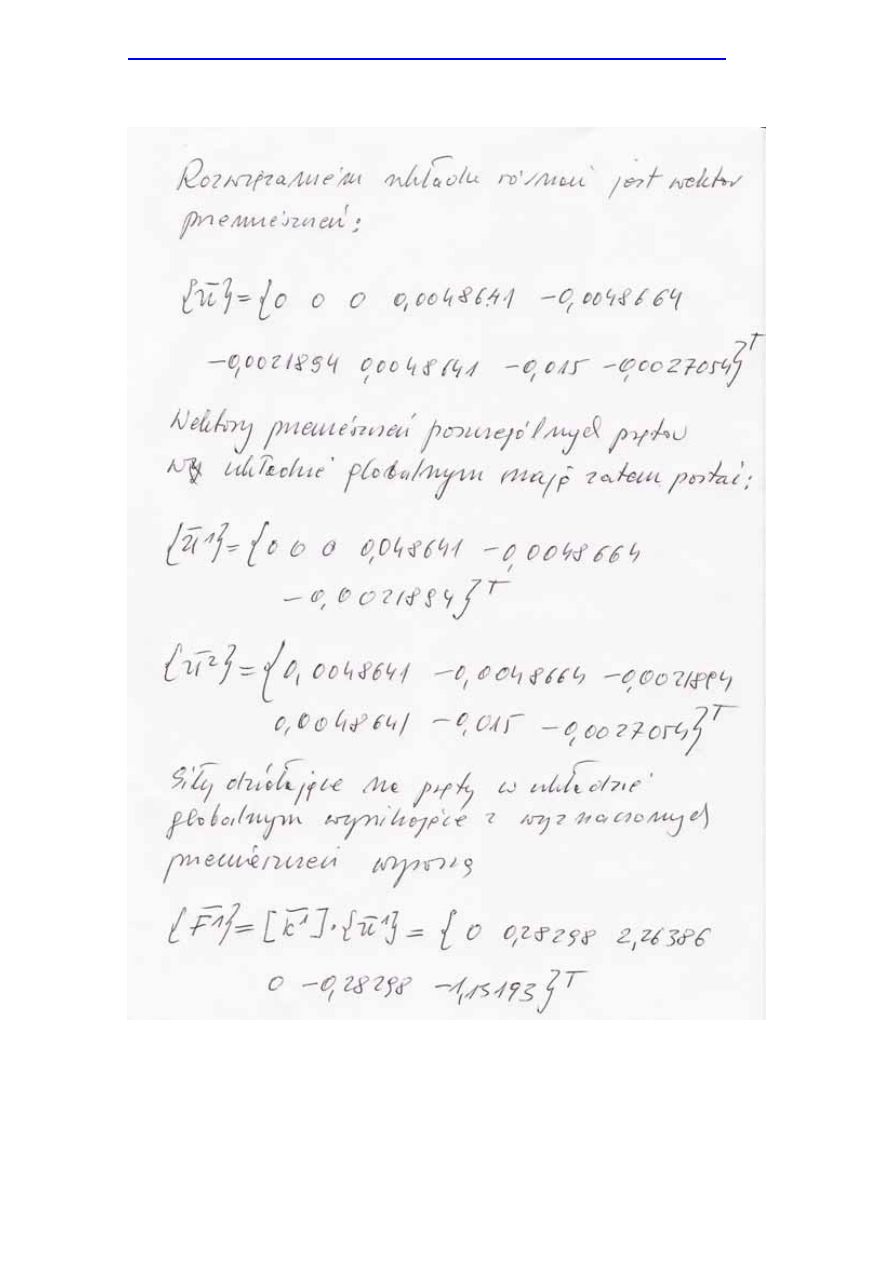 Rozwiązaniem układu równań jest wektor
przemieszczeń:
{ū}={0 0 0 0,0048641 -0,0048664
-0,0021894 0,0048641 -0,015 -0,0027054}ᵀ
Wektory przemieszczeń poszczególnych prętów
w układzie globalnym mają zatem postać:
{ū¹}={0 0 0 0,048641 -0,0048664
-0,0021894}ᵀ
{ū²}={0,0048641 -0,0048664 -0,0021894
0,0048641 -0,015 -0,0027054}ᵀ
Siły działające na pręty w układzie
globalnym wynikające z wyznaczonych
przemieszczeń wynoszą
{F̄¹}=[k̄¹]·{ū¹}={0 0,28298 2,26386
0 -0,28298 -1,13193}ᵀ